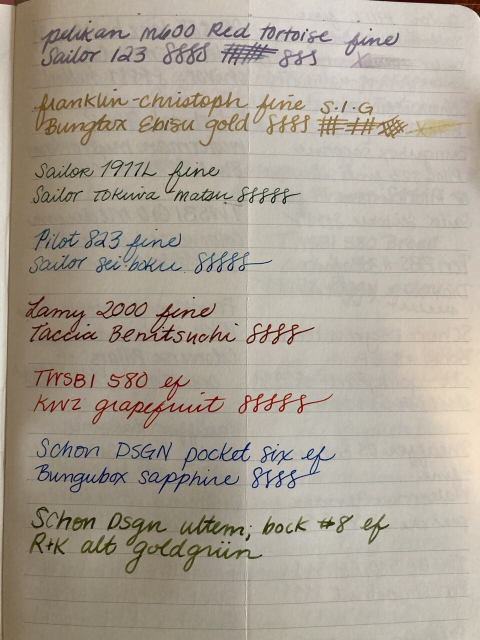 pelikan m600 Red tortoise fine
Sailor 123
franklin-christoph fine S.I.G
Bungbox Ebisu gold
Sailor 1911L fine
Sailor Tokiwa matsu
Pilot 823 fine
Sailor sei-boku
Lamy 2000 fine
Taccia Benitsuchi
TWSBI 580 ef
KWZ grapefruit
Schon DSGN pocket six ef
Bungubox sapphire
Schon Dsgn ultem; bock #8 ef
R+K alt goldgrün